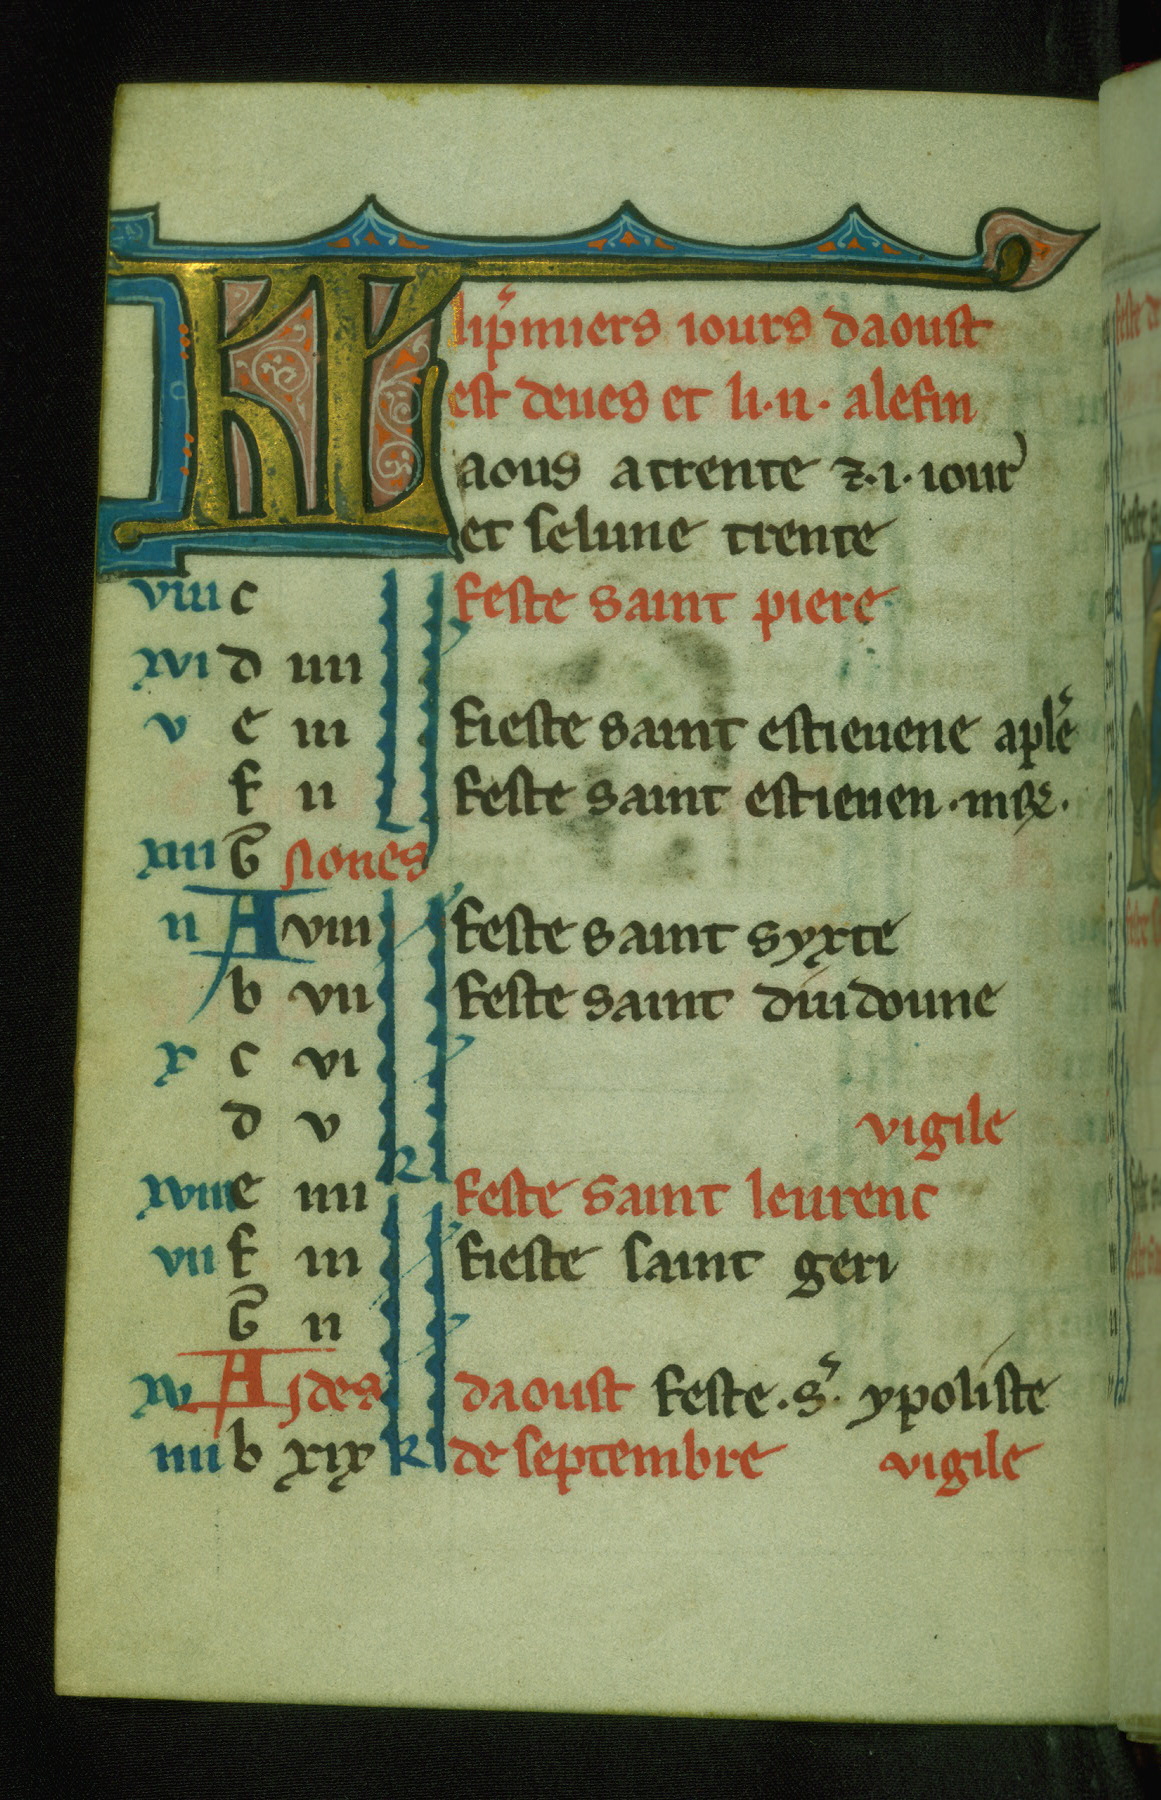 KL li p'miers iours daoust
est deues et li .ii. alefin
aous a trente ⁊ .i. iour
et se lune trente
viii c feste saint piere
xvi d iiii
v e iii fieste saint estieuene
f ii feste saint estieuen .
xiii G Nones
ii A viii feste saint syxte
b vii feste saint diudoune
x c vi
d v vigile
xviii e iiii feste saint leurenc
vii f iii fieste saint geri
G ii
xv A Ides daoust feste .s'. ypoliste
iiii b xix kl de septembre vigile